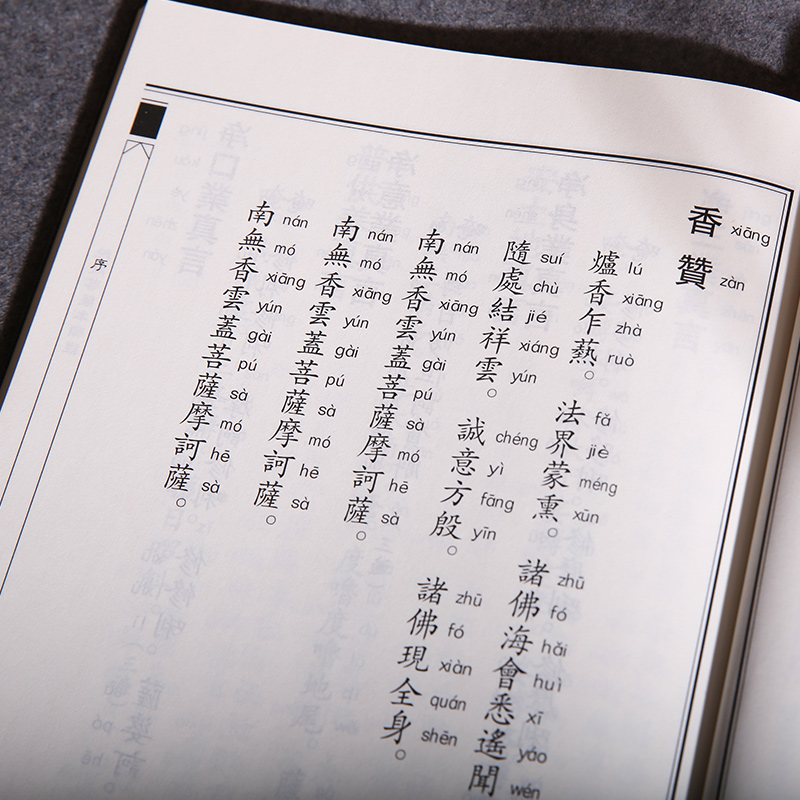 香贊
xiāng zàn
爐香乍爇。法界蒙熏。諸佛海會悉遙聞
lú xiāng zhà ruò fǎ jiè méng xūn zhū fó hǎi huì xī yáo wén
隨處結祥雲。誠意方殷。諸佛現全身。
suí chù jié xiáng yún chéng yì fāng yīn zhū fó xiàn quán shēn
南無香雲蓋菩薩摩訶薩。
nán mó xiāng yún gài pú sà mó hē sà
南無香雲蓋菩薩摩訶薩。
nán mó xiāng yún gài pú sà mó hē sà
南無香雲蓋菩薩摩訶薩。
nán mó xiāng yún gài pú sà mó hē sà
序